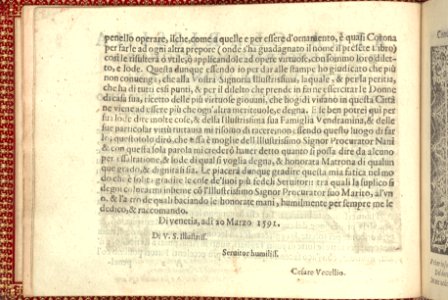 penello operare, ilche, come a quelle e per essere d'ornamento, è quasi Corona
per farle ad ogni altra prepore (onde s'ha guadagnato il nome il presẽte Libro)
così le risulterà ò vtile, ò applicandole ad opere virtuose, con sommo loro dilet-
to, e lode. Questa dunque essendo io per dar alle stampe hò giudicato che più
non conuenga, che alla Vostra Signoria Illustrissima, la quale, & per la peritia,
che ha di tutti essi punti, & per il diletto che prende in farne essercitar le Donne
di casa sua, ricetto delle più virtuose giouani, che hoggidì viuano in questa Città
ne viene ad essere più che ogn'altra meriteuole, e degna. E se ben potrei qui per
sua lode dire molte cose, & della Illustrissima sua Famiglia Vendramina, & delle
sue particolar virtù tuttauia mi risoluo di tacere, non essendo questo luogo di far
lo; questo solo dirò, che essa è moglie dell'Illustrissimo Signor Procurator Nani
& con questa sola parola mi crederò hauer detto quanto si possa dire da alcuno
per essaltatione, & lode di qual si voglia degna, & honorata Matrona di qualun
que grado, & dignità si sia. Le piacerà dunque gradire questa mia fatica nel mo
do che è solita gradire le cose de'suoi più fedeli Seruitori: tra quali la suplico si
degni collocarmi insieme cõ l'Illustrissimo Signor Procurator suo Marito, all'vn
n. & l'altro de quali baciando le honorate mani, humilmente per sempre me le
dedico, & raccomando.
Di Venetia, adi 20 Marzo 1591.
Di V. S. Illustriss.
Seruitor humiliss.
Cesare Vecellio.